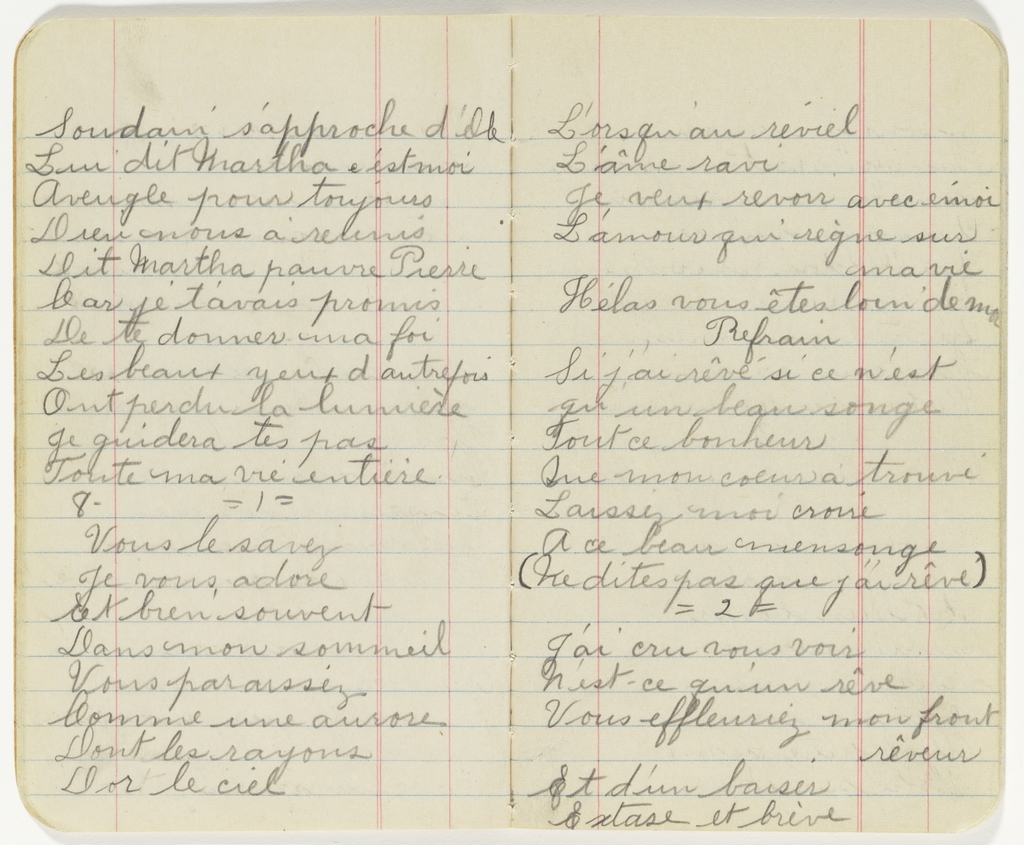 Soudain s'approche d'
Lui dit Martha c'est moi
Aveugle pour toujours
Dieu nous a reunis
Dit Martha pauvre Pierre
Car je t'avais promis
De te donner ma foi
Les beaux yeux d'autrefois
Ont perdu la lumière
Je guidera tes pas
Toute ma vie entière.
8- =1=
Vous le savez
Je vous adore
Et bien souvent
Dans mon sommeil
Vous paraissez
Comme une aurore
Dont les rayons
D'or le ciel
L'orsqu'au réviel
L'âme ravi
Je veux revoir avec émoi
L'amour qui règne sur
ma vie
Hélas vous êtes loin de moi
Refrain
Si j'ai rêvé si ce n'est
qu'un beau songe
Tout ce bonheur
Que mon coeur a trouvé
Laissez moi croire
A ce beau mensonge
(Ne dites pas que j'ai rêvé)
= 2 =
J'ai cru vous voir
N'est-ce qu'un rêve
Vous effleuriez mon front
rêveur
Et d'un baiser
Extase et brève